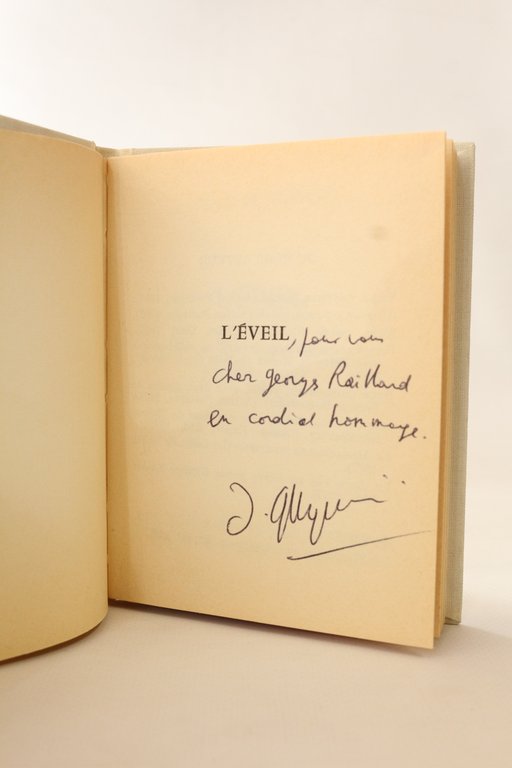 L'ÉVEIL, pour vous
cher Georges Raillard
en cordial hommage.